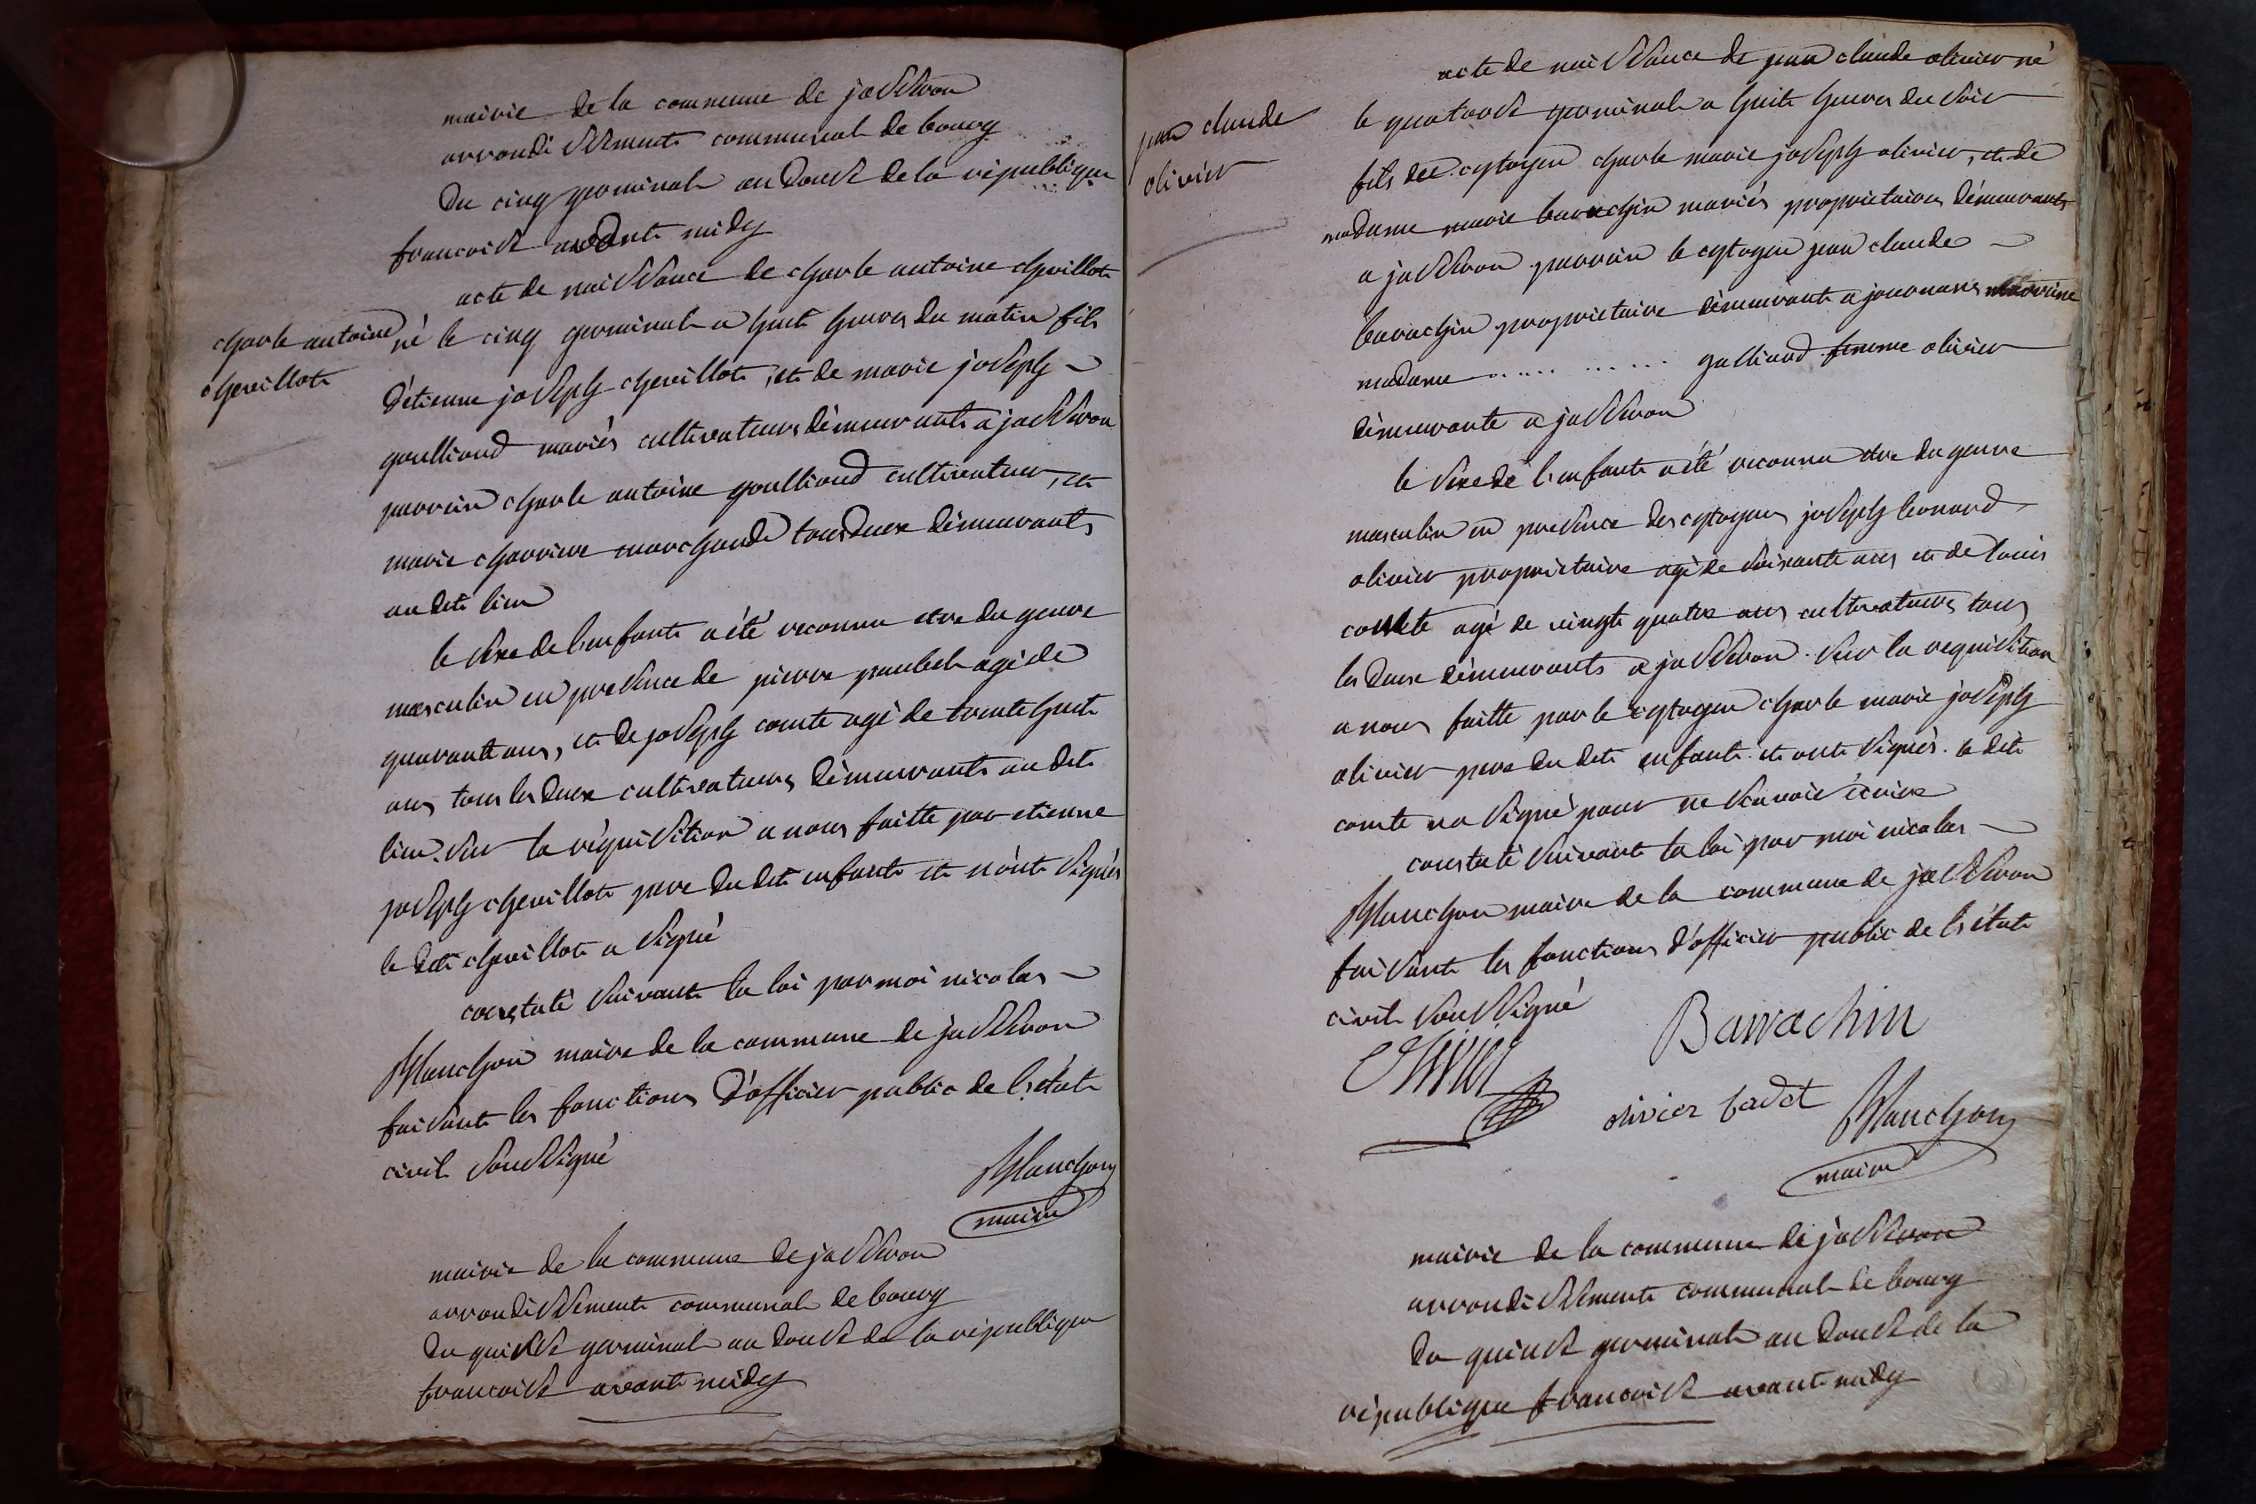 mairie de la commune de jasseron
arrondissement communal de bourg
du cinq germinal an douse de la république
francoise avant midy
acte de naissance de charle antoine chevillot
charle antoine
chevillot
né le cinq germinal a huit heures du matin fils
d'étienne joseph chevillot, et de marie joseph
goulliaud mariés cultivateurs démeurants a jasseron
parrain charle antoine goulliaud cultivateur, et
marie charriere marchande tous deux démeurants
au dit lieu
le sexe de l'enfant a été reconnu etre du genre
masculin en presence de pierre paubel agé de
quarante ans, et de joseph comte agé de trente huit
ans tous les deux cultivateurs démeurants au dit
lieu. sur la réquisition a nous faitte par etienne
joseph chevillot pere du dit enfant et n'ont signés
le dit chevillot a signé
constaté suivant la loi par moi nicolas
Manchon maire de la commune de jasseron
faisant les fonctions d'officier public de l'état
civil soussigné
Manchon
maire
mairie de la commune de jasseron
arrondissement communal de bourg
du quinse germinal an douse de la république
francoise avant midy
acte de naissance de jean claude olivier né
jean claude
olivier
le quatorse germinal a huit heures du soir
fils du cytoyen charle marie joseph olivier, et de
madame marie barachin mariés proprietaires démeurants
a jasseron parrain le cytoyen jean claude
barachin proprietaire démeurant a journans marrine
madame ..... ...... galliard femme olivier
démeurante a jasseron
le sexe de l'enfant a été reconnu etre du genre
masculin en presence des cytoyens joseph leonard
olivier proprietaire agé de soixante ans et de louis
comte agé de vingt quatre ans cultivateurs tous
les deux démeurants a jasseron. sur la requisition
a nous faitte par le cytoyen charle marie joseph
olivier pere du dit enfant et ont signés. le dit
comte n'a signé pour ne savoir écrire
constaté suivant la loi par moi nicolas
Manchon maire de la commune de jasseron
faisant les fonctions d'officier public de l'état
civil soussigné
Barrachin
Olivier
olivier cadet
Manchon
maire
mairie de la commune de jasseron
arrondissement communal de bourg
du quinse germinal an douse de la
république francoise avant midy